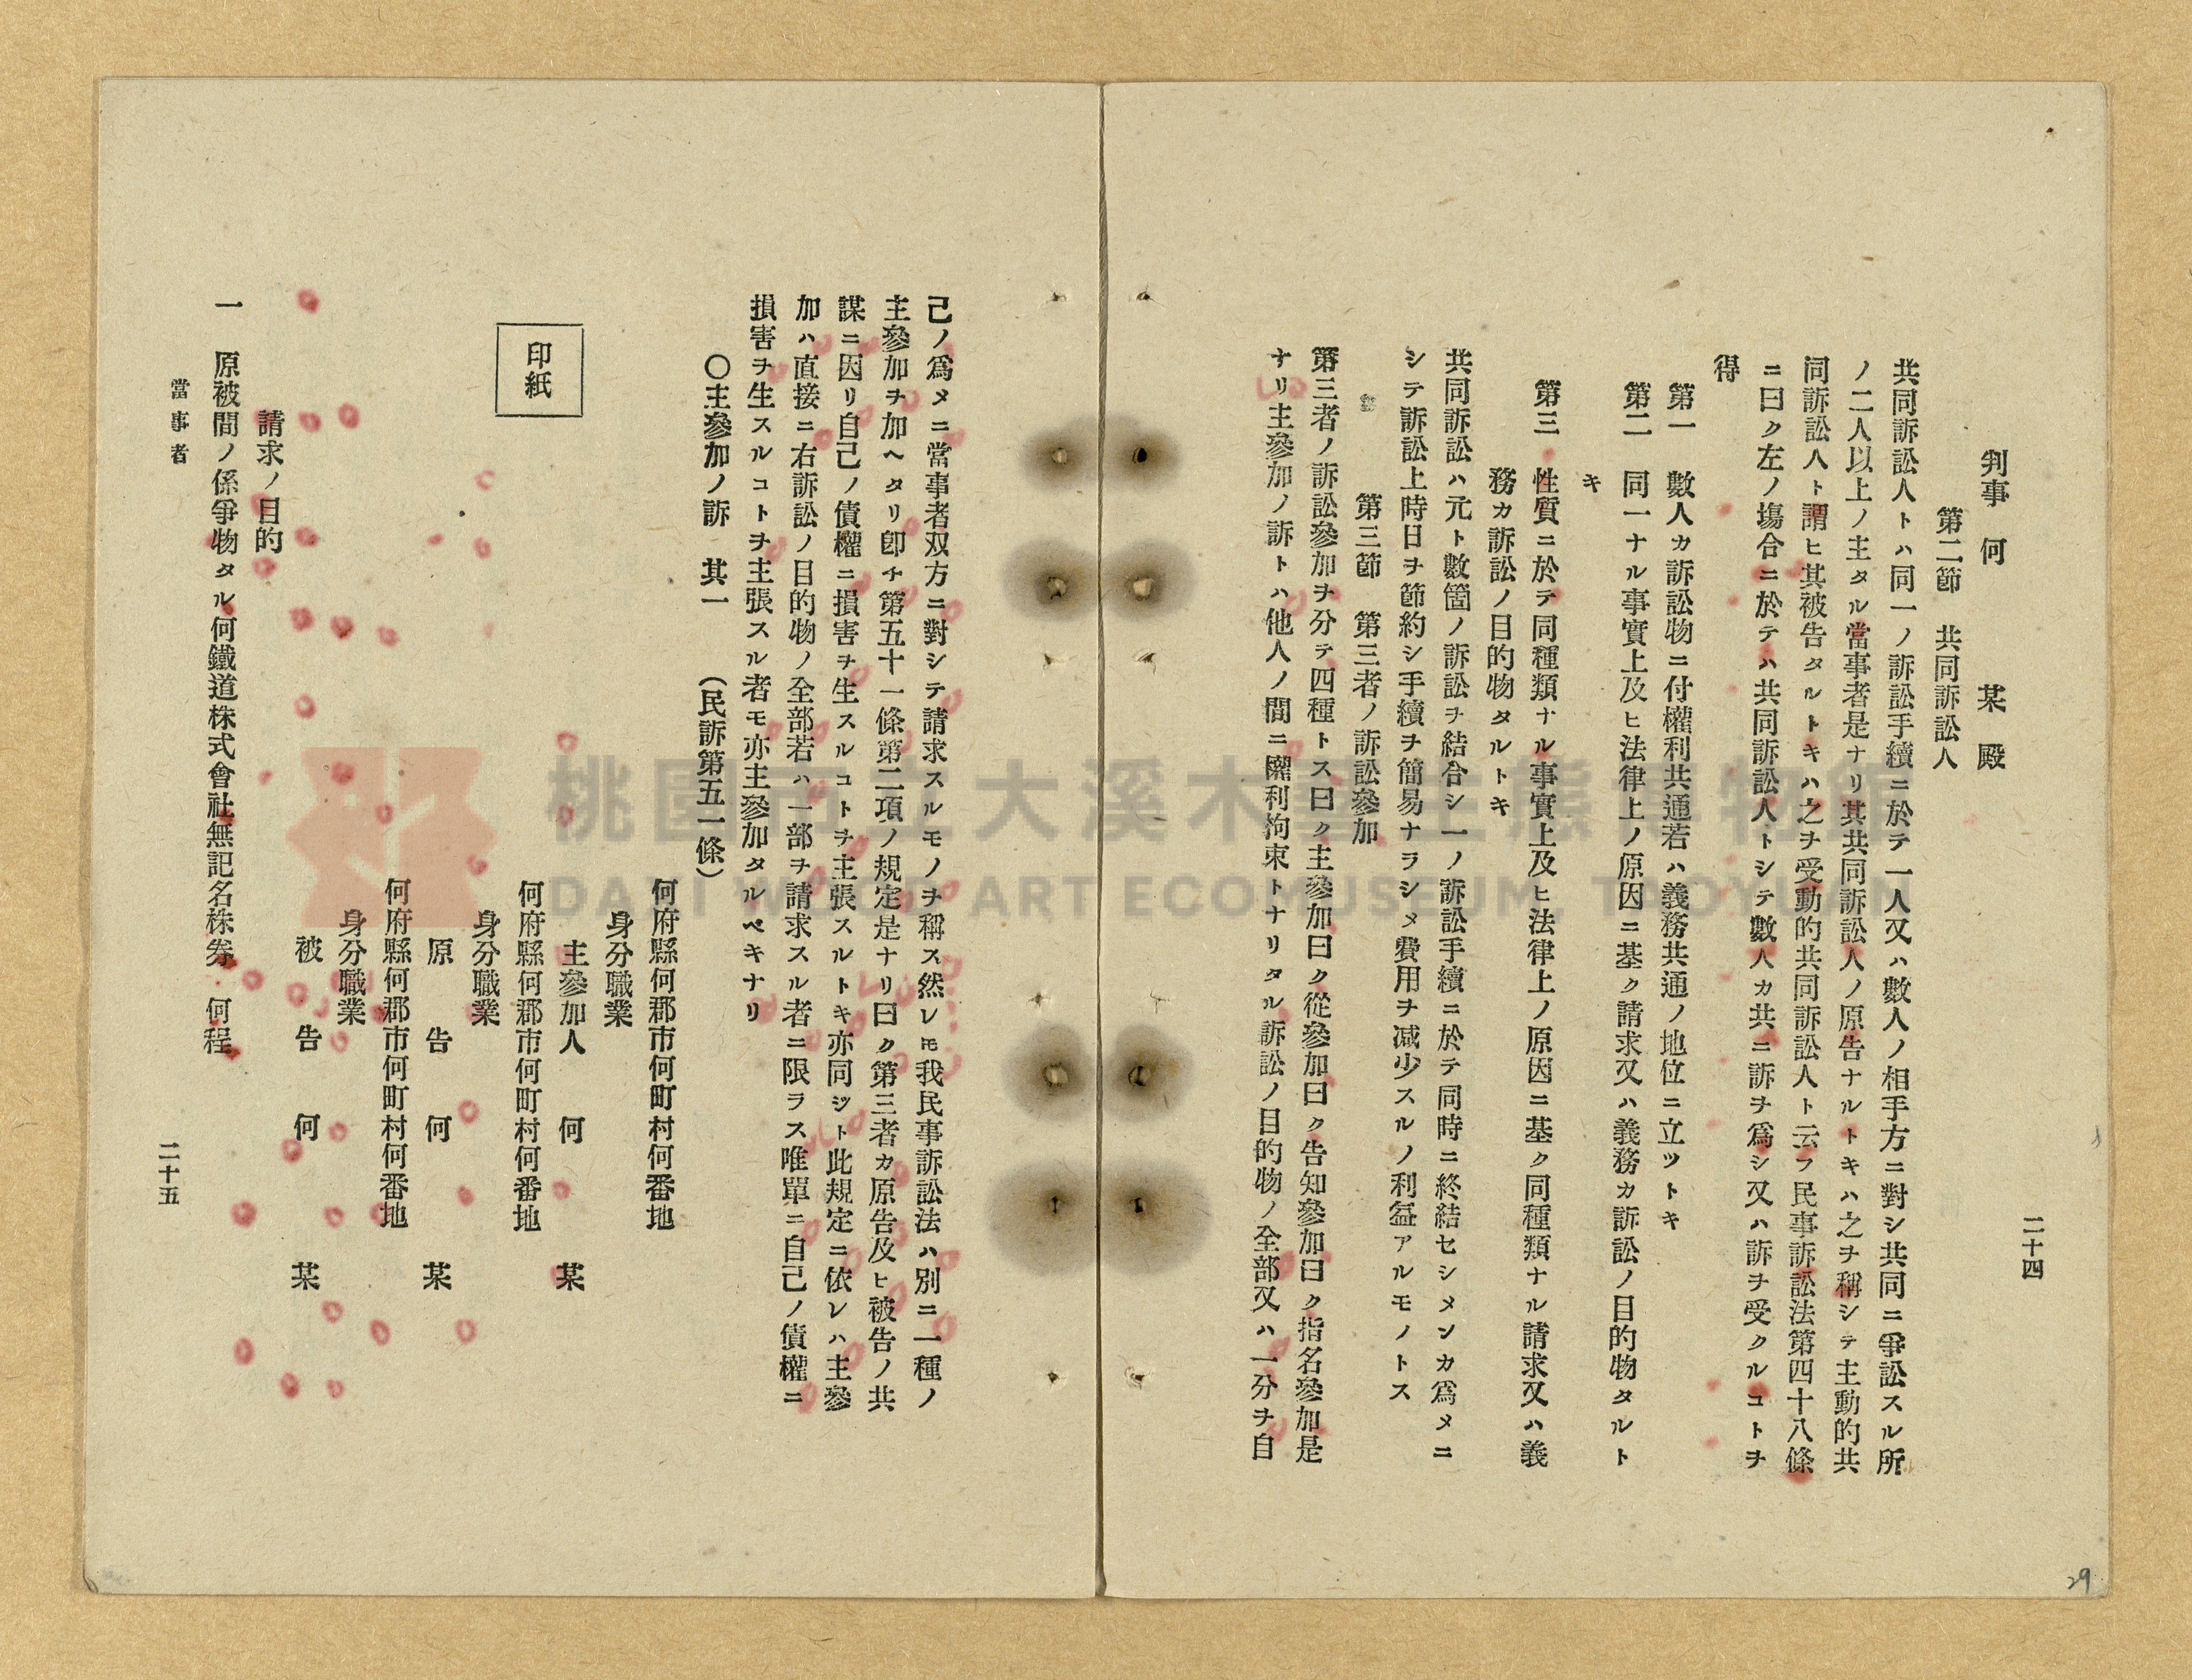 二十四
判事 何 某 殿
第二節 共同訴訟人
共同訴訟人トハ同一ノ訴訟手續ニ於テ一人又ハ數人ノ相手方ニ對シ共同ニ爭訟スル所
ノ二人以上ノ主タル當事者是ナリ其共同訴訟人ノ原告ナルトキハ之ヲ稱シテ主動的共
同訴訟人ト謂ヒ其被告タルトキハ之ヲ受動的共同訴訟人ト云フ民事訴訟法第四十八條
ニ曰ク左ノ塲合ニ於テハ共同訴訟人トシテ數人カ共ニ訴ヲ爲シ又ハ訴ヲ受クルコトヲ
得
第一 數人カ訴訟物ニ付權利共通若ハ義務共通ノ地位ニ立ツトキ
第二 同一ナル事實上及ヒ法律上ノ原因ニ基ク請求又ハ義務カ訴訟ノ目的物タルト
キ
第三 性質ニ於テ同種類ナル事實上及ヒ法律上ノ原因ニ基ク同種類ナル請求又ハ義
務カ訴訟ノ目的物タルトキ
共同訴訟ハ元ト數箇ノ訴訟ヲ結合シ一ノ訴訟手續ニ於テ同時ニ終結セシメンカ爲メニ
シテ訴訟上時日ヲ節約シ手續ヲ簡易ナラシメ費用ヲ减少スルノ利益アルモノトス
第三節 第三者ノ訴訟參加
第三者ノ訴訟參加ヲ分テ四種トス曰ク主參加曰ク從參加曰ク告知參加曰ク指名參加是
ナリ主參加ノ訴トハ他人ノ間ニ權利拘束トナリタル訴訟ノ目的物ノ全部又ハ一分ヲ自
己ノ爲メニ當事者双方ニ對シテ請求スルモノヲ稱ス然レ𪜈我民事訴訟法ハ別ニ一種ノ
主參加ヲ加ヘタリ卽チ第五十一條第二項ノ規定是ナリ曰ク第三者カ原告及ヒ被告ノ共
謀ニ因リ自己ノ債權ニ損害ヲ生スルコトヲ主張スルトキ亦同シト此規定ニ依レハ主參
加ハ直接ニ右訴訟ノ目的物ノ全部若ハ一部ヲ請求スル者ニ限ラス唯單ニ自己ノ債權ニ
損害ヲ生スルコトヲ主張スル者モ亦主參加タルベキナリ
〇主參加ノ訴 其一 (民訴第五一條)
何府縣何郡市何町村何番地
身分職業
主參加人 何 某
印紙
何府縣何郡市何町村何番地
身分職業
原 告 何 某
何府縣何郡市何町村何番地
身分職業
被 告 何 某
請求ノ目的
一 原被間ノ係爭物タル何鐵道株式會社無記名株券 何程
當事者
二十五
29
桃園市立大溪木藝生態博物館
DAXI WOOD ART ECOMUSEUM, TAOYUAN